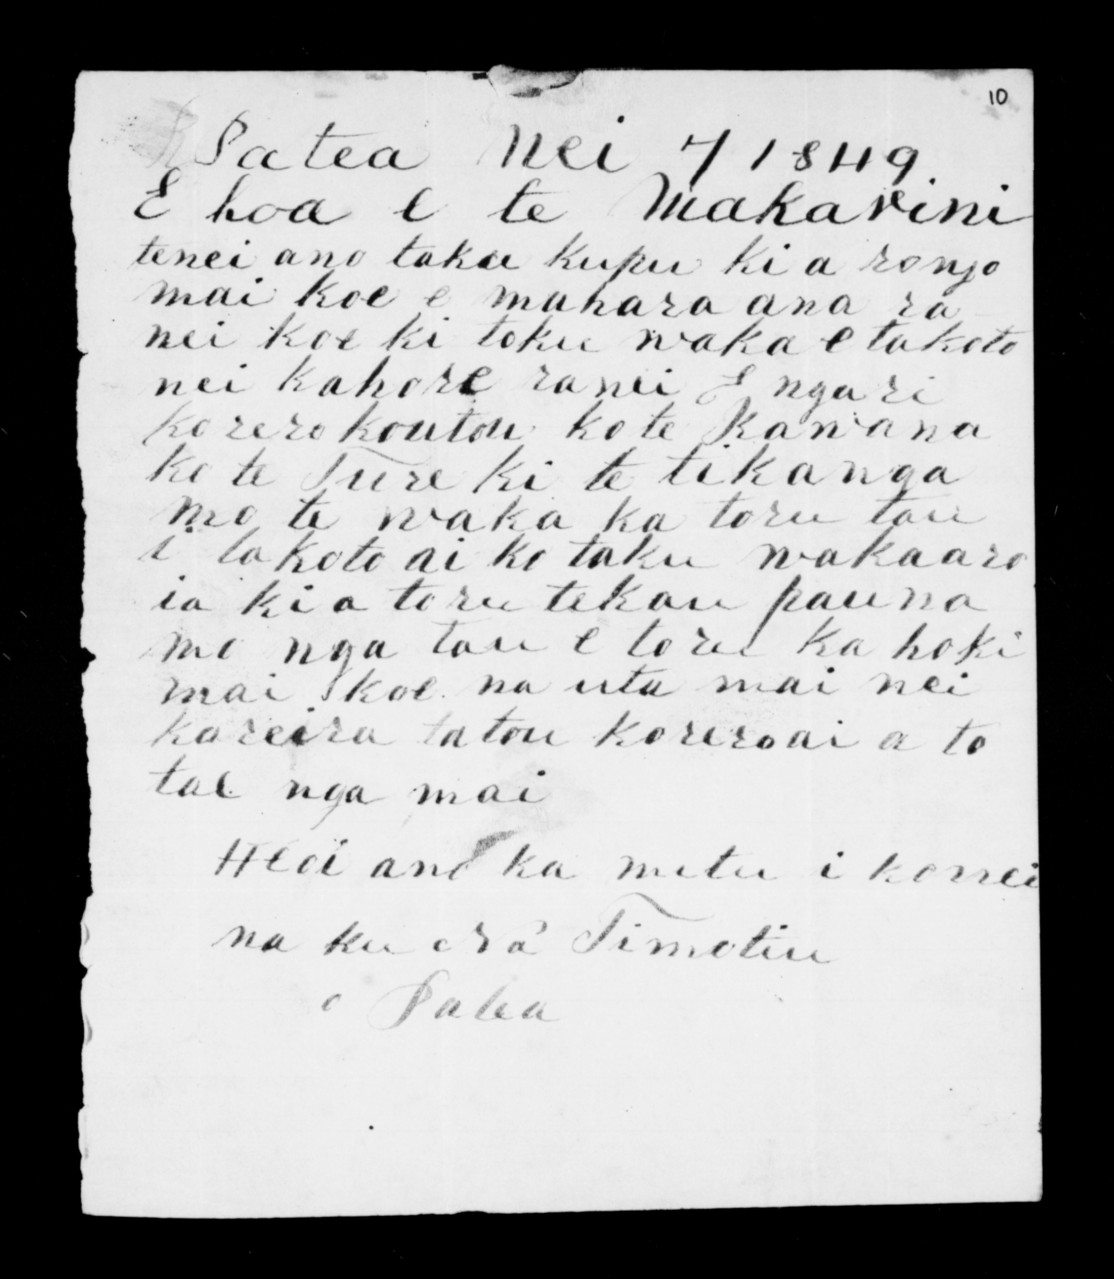 10
Patea Nei 7 1849
E hoa e te Makarini
tenei ano taku kupu ki a rongo
mai koe e mahara ana ra
nei koe ki toku waka e takoto
nei kahore ranei E ngari
korero koutou ko te Kawana
ko te Ture ki te tikanga
mo te waka ka toru tau
i takoto ai ko taku wakaaro
ia ki a toru tekau pauna
mo nga tau e toru ka hoki
mai koe na uta mai nei
kareira tatou korero ai a to
tae nga mai
Heoi ano ka mutu i konei
na ku na Timotiu
o Patea